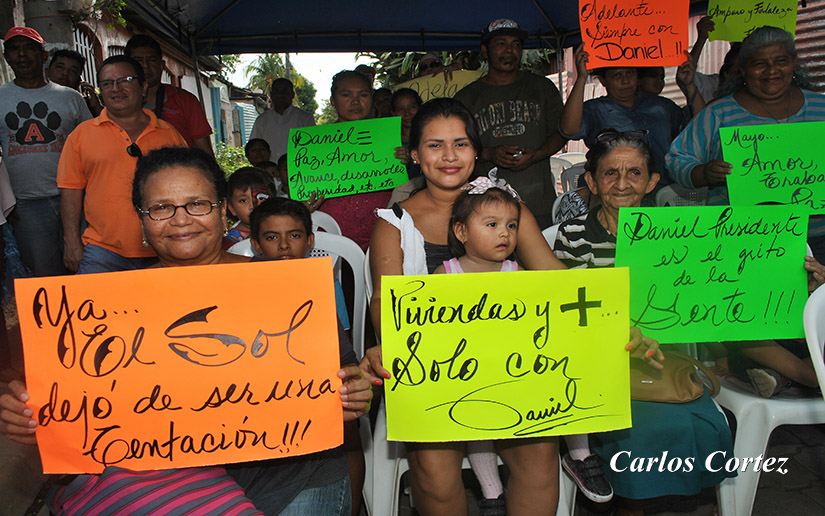 Adelante...
Siempre con
Daniel!!!
Amparo y Fortaleza
Daniel =
Paz, Amor,
Avance, desarrollo
Prosperidad, etc. etc.
Mayo...
Amor,
Paz
Daniel Presidente
es el grito
de la
Gente!!!
Ya...
El Sol
dejó de ser una
Tentación!!!
Viviendas y +...
Solo con
Daniel
Carlos Cortez